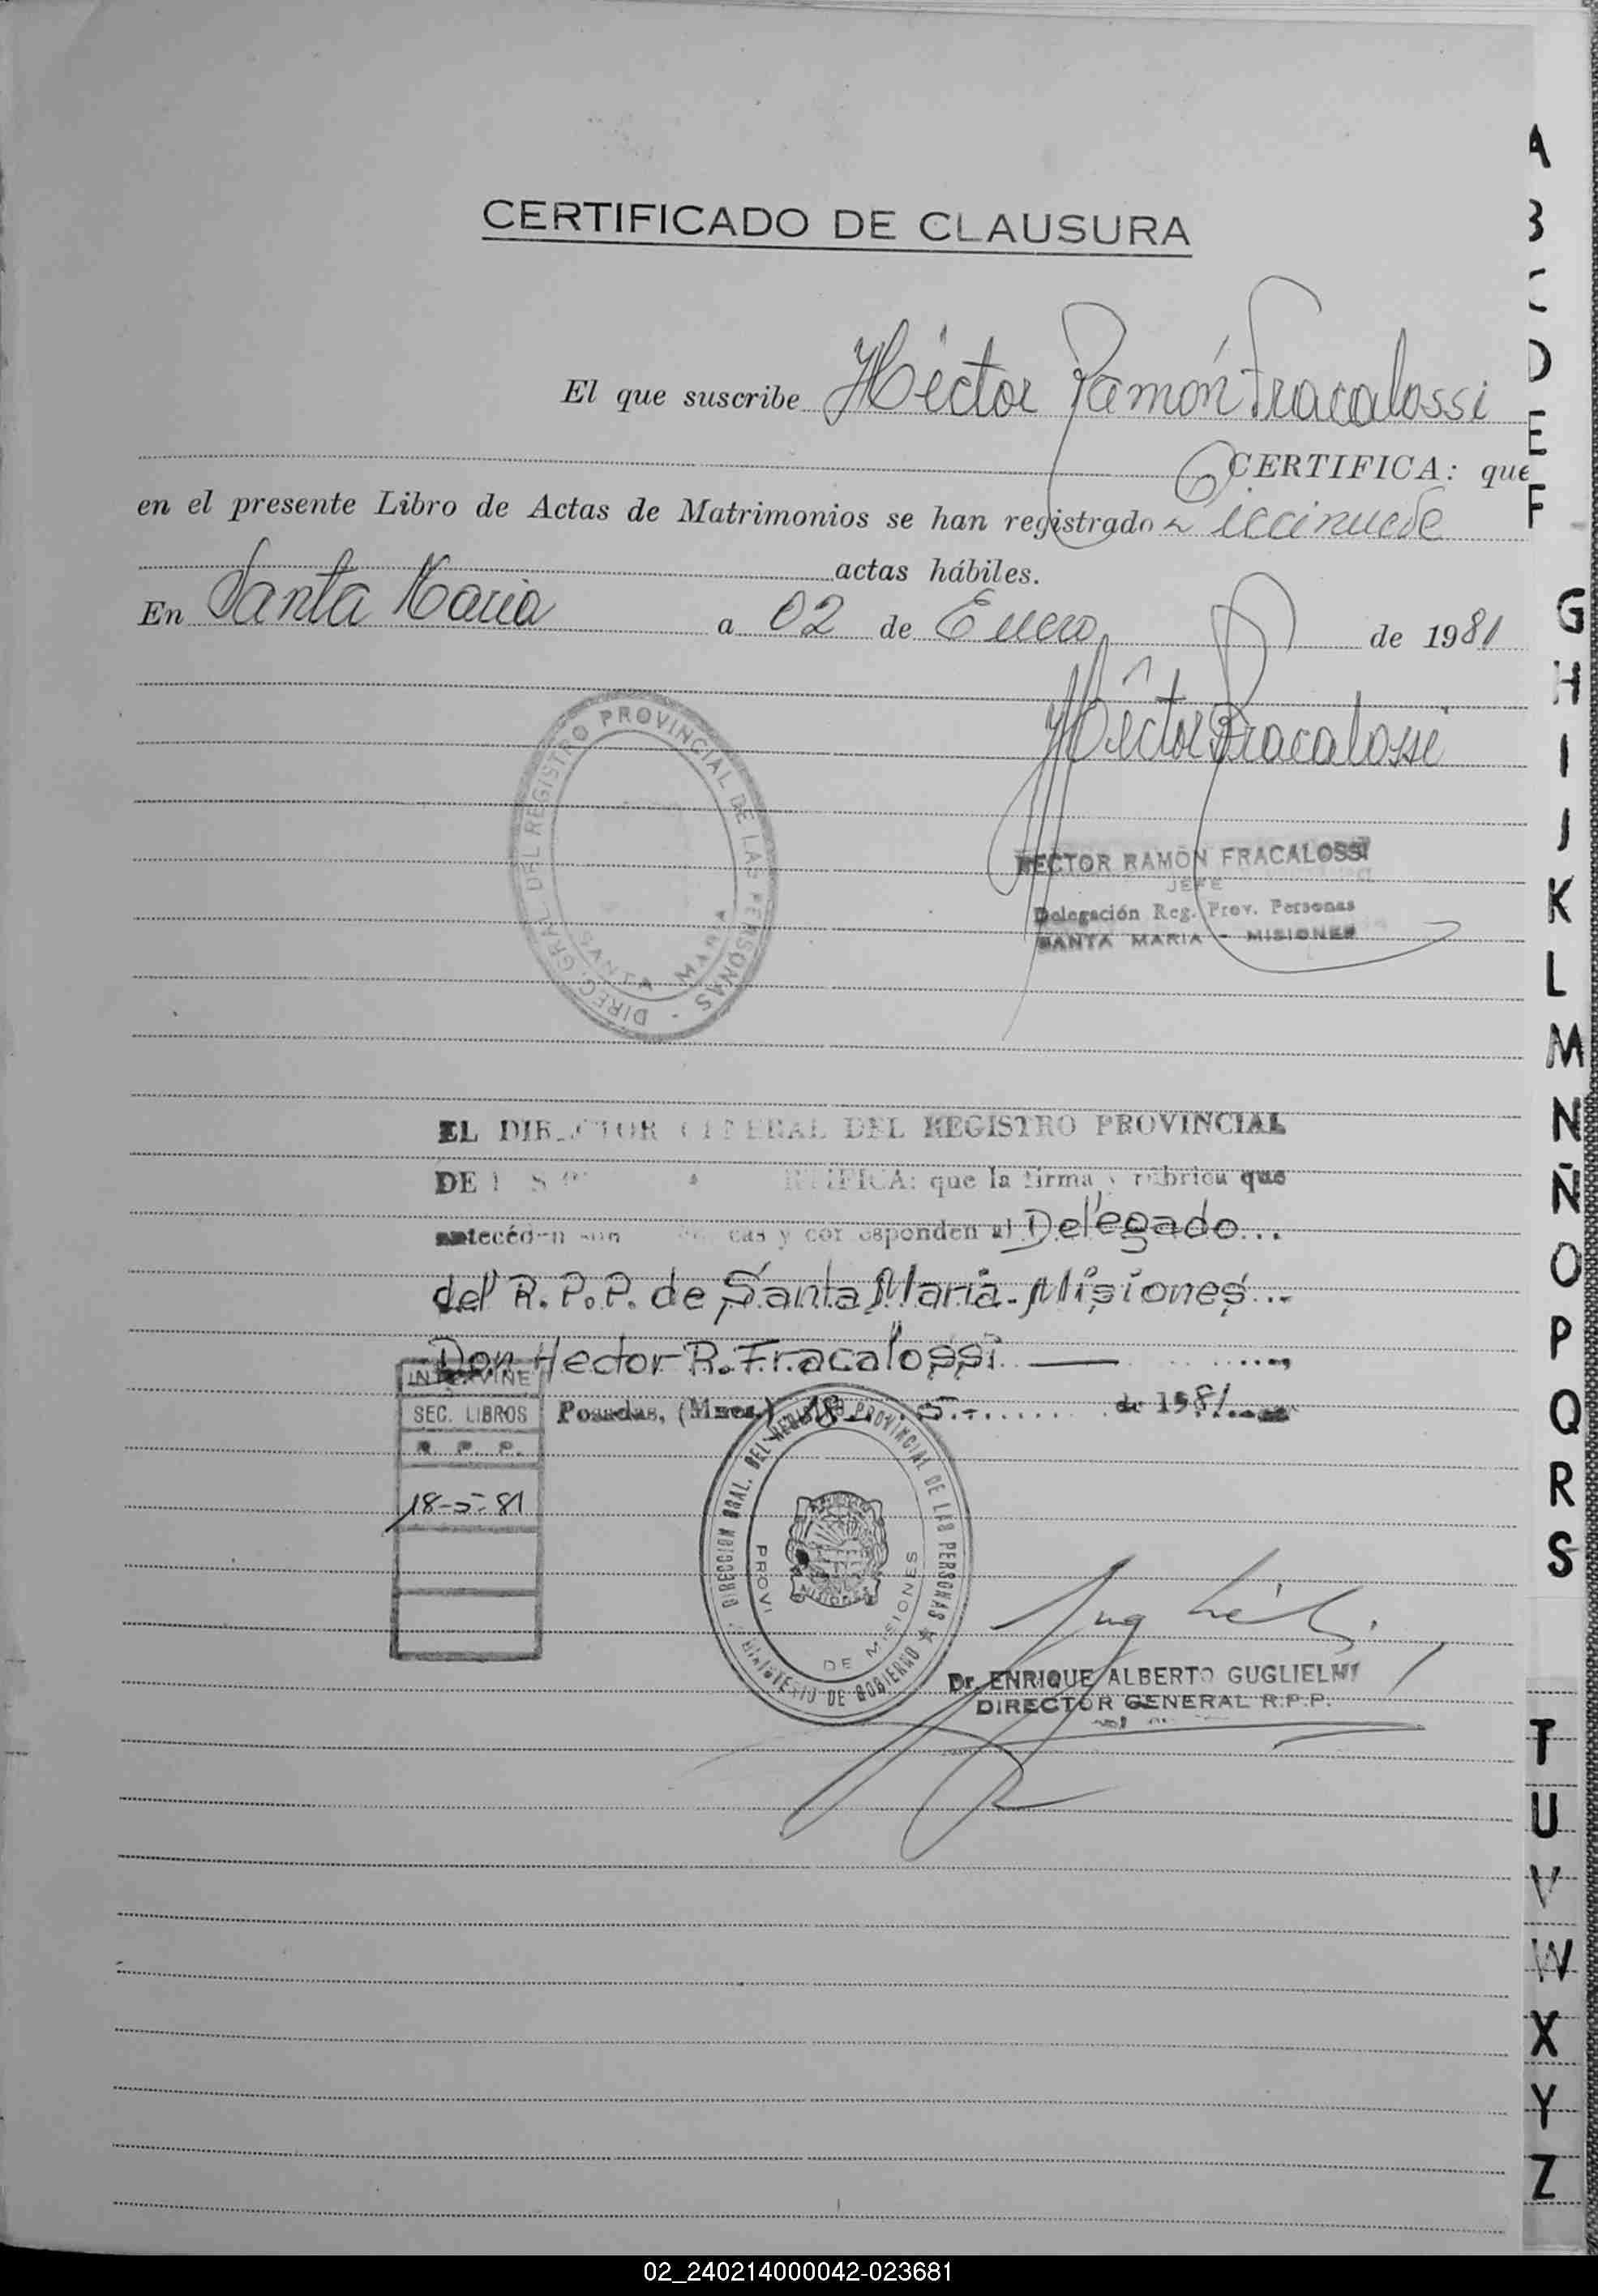 CERTIFICADO DE CLAUSURA
El que suscribe Héctor Ramón Fracalossi
CERTIFICA: que
en el presente Libro de Actas de Matrimonios se han registrado Diecinueve
actas hábiles.
En Santa Maria a 02 de Enero de 1981
Héctor Fracalossi
DIREC. GRAL. DEL REGISTRO PROVINCIAL DE LAS PERSONAS
SANTA MARIA
HECTOR RAMÓN FRACALOSSI
JEFE
Delegación Reg. Prov. Personas
SANTA MARIA - MISIONES
EL DIRECTOR GENERAL DEL REGISTRO PROVINCIAL
DE CERTIFICA: que la firma y rúbrica que
antecéden son y corresponden al Delegado...
del R.P.P. de Santa María-Misiones...
Don Hector R. Fracalossi
INTERVINE
SEC. LIBROS
R. P. P.
18-5-81
Posadas, (Mnes.) 18 - 5 - de 1981
DIRECCION GRAL. DEL REGISTRO PROVINCIAL DE LAS PERSONAS
MINISTERIO DE GOBIERNO
PROVI DE MISIONES
MISIONES
Dr. ENRIQUE ALBERTO GUGLIELMI
DIRECTOR GENERAL R.P.P.
A
B
C
D
E
F
G
H
I
J
K
L
M
N
Ñ
O
P
Q
R
S
T
U
V
W
X
Y
Z
02_240214000042-023681